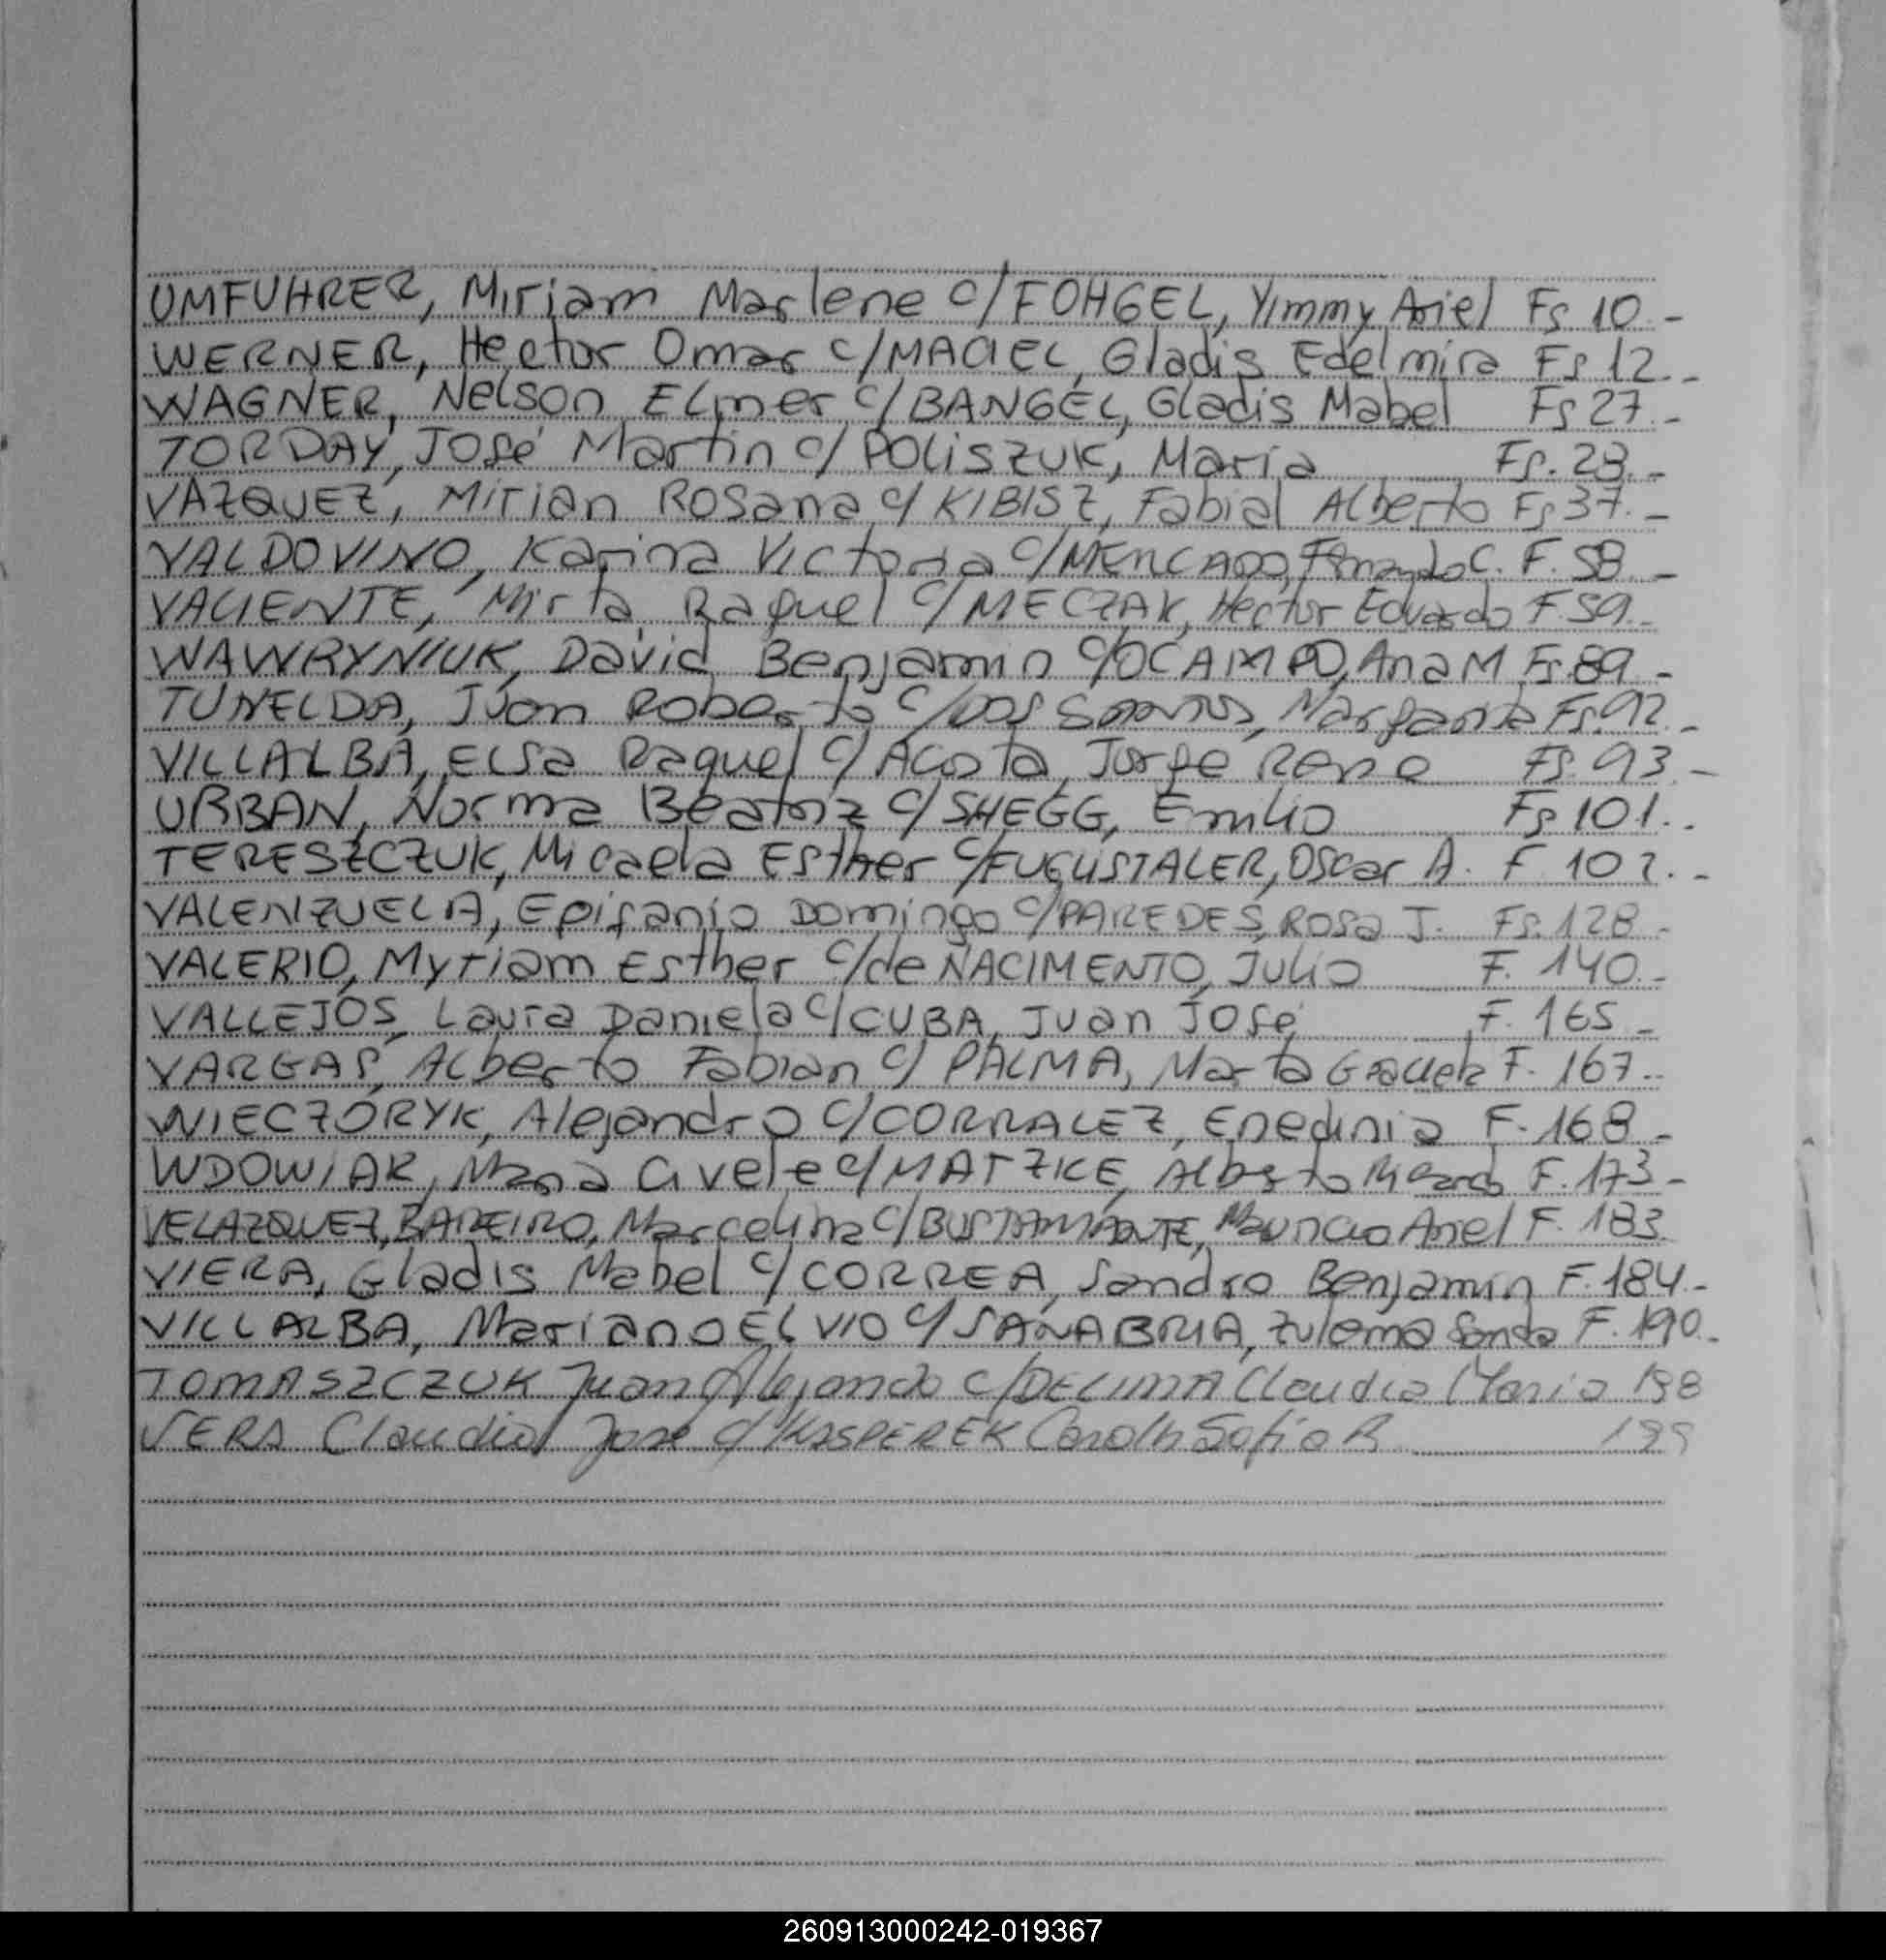 UMFUHRER, Miriam Marlene c/ FOHGEL, Yimmy Ariel Fs 10.-
WERNER, Hector Omar c/ MACIEL, Gladis Edelmira Fs 12.-
WAGNER, Nelson ELmer c/ BANGEL, Gladis Mabel Fs 27.-
TORDAY, José Martin c/ POLISZUK, Maria Fs. 28.-
VAZQUEZ, Mirian Rosana c/ KIBISZ, Fabial Alberto Fs 37.-
VALDOVINO, Karina Victoria c/ MERCADO, C. F. 58.-
VALIENTE, Mirta Raquel c/ MECZAK, Hector Eduardo F. 59.-
WAWRYNIUK, David Benjamin c/ OCAMPO, Ana M Fs. 89.-
TUNELDA, Juan Roberto c/ DOS SANTOS, Margarita Fs. 92.-
VILLALBA, ELSa Raquel c/ Acosta, Jorge Rene Fs. 93.-
URBAN, Norma Beatriz c/ SHEGG, Emilio Fs 101.-
TERESZCZUK, Micaela Esther c/ FUGLISTALER, Oscar A. F 102.-
VALENZUELA, Epifanio Domingo c/ PAREDES, Rosa J. Fs. 128.-
VALERIO, Myriam Esther c/ de NACIMENTO, Julio F. 140.-
VALLEJOS, Laura Daniela c/ CUBA, Juan José F. 165.-
VARGAS, Alberto Fabian c/ PALMA, Marta Graciela F. 167.-
WIECZORYK, Alejandro c/ CORRALEZ, Enedinia F. 168.-
WDOWIAK, Maria Civele c/ MATZKE, Alberto Ricardo F. 173.-
VELAZQUEZ, BAREIRO, Marcelina c/ BUSTAMANTE, Mauricio Ariel F. 183.
VIERA, Gladis Mabel c/ CORREA, Sandro Benjamin F. 184.-
VILLALBA, Mariano ELVIO c/ SANABRIA, Zulema F. 190.-
TOMASZCZUK Juan Alejandro c/ DELIMA Claudia Maria 198
VERA Claudio José c/ KASPEREK Sofia R 199
260913000242-019367